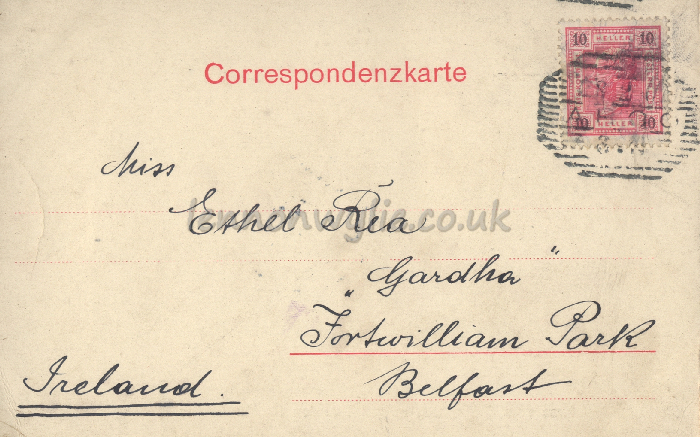 10 HELLER 10
Correspondenzkarte
10 HELLER 10
Miss
Ethel Rea
"Gardha"
Fortwilliam Park
Belfast
Ireland.